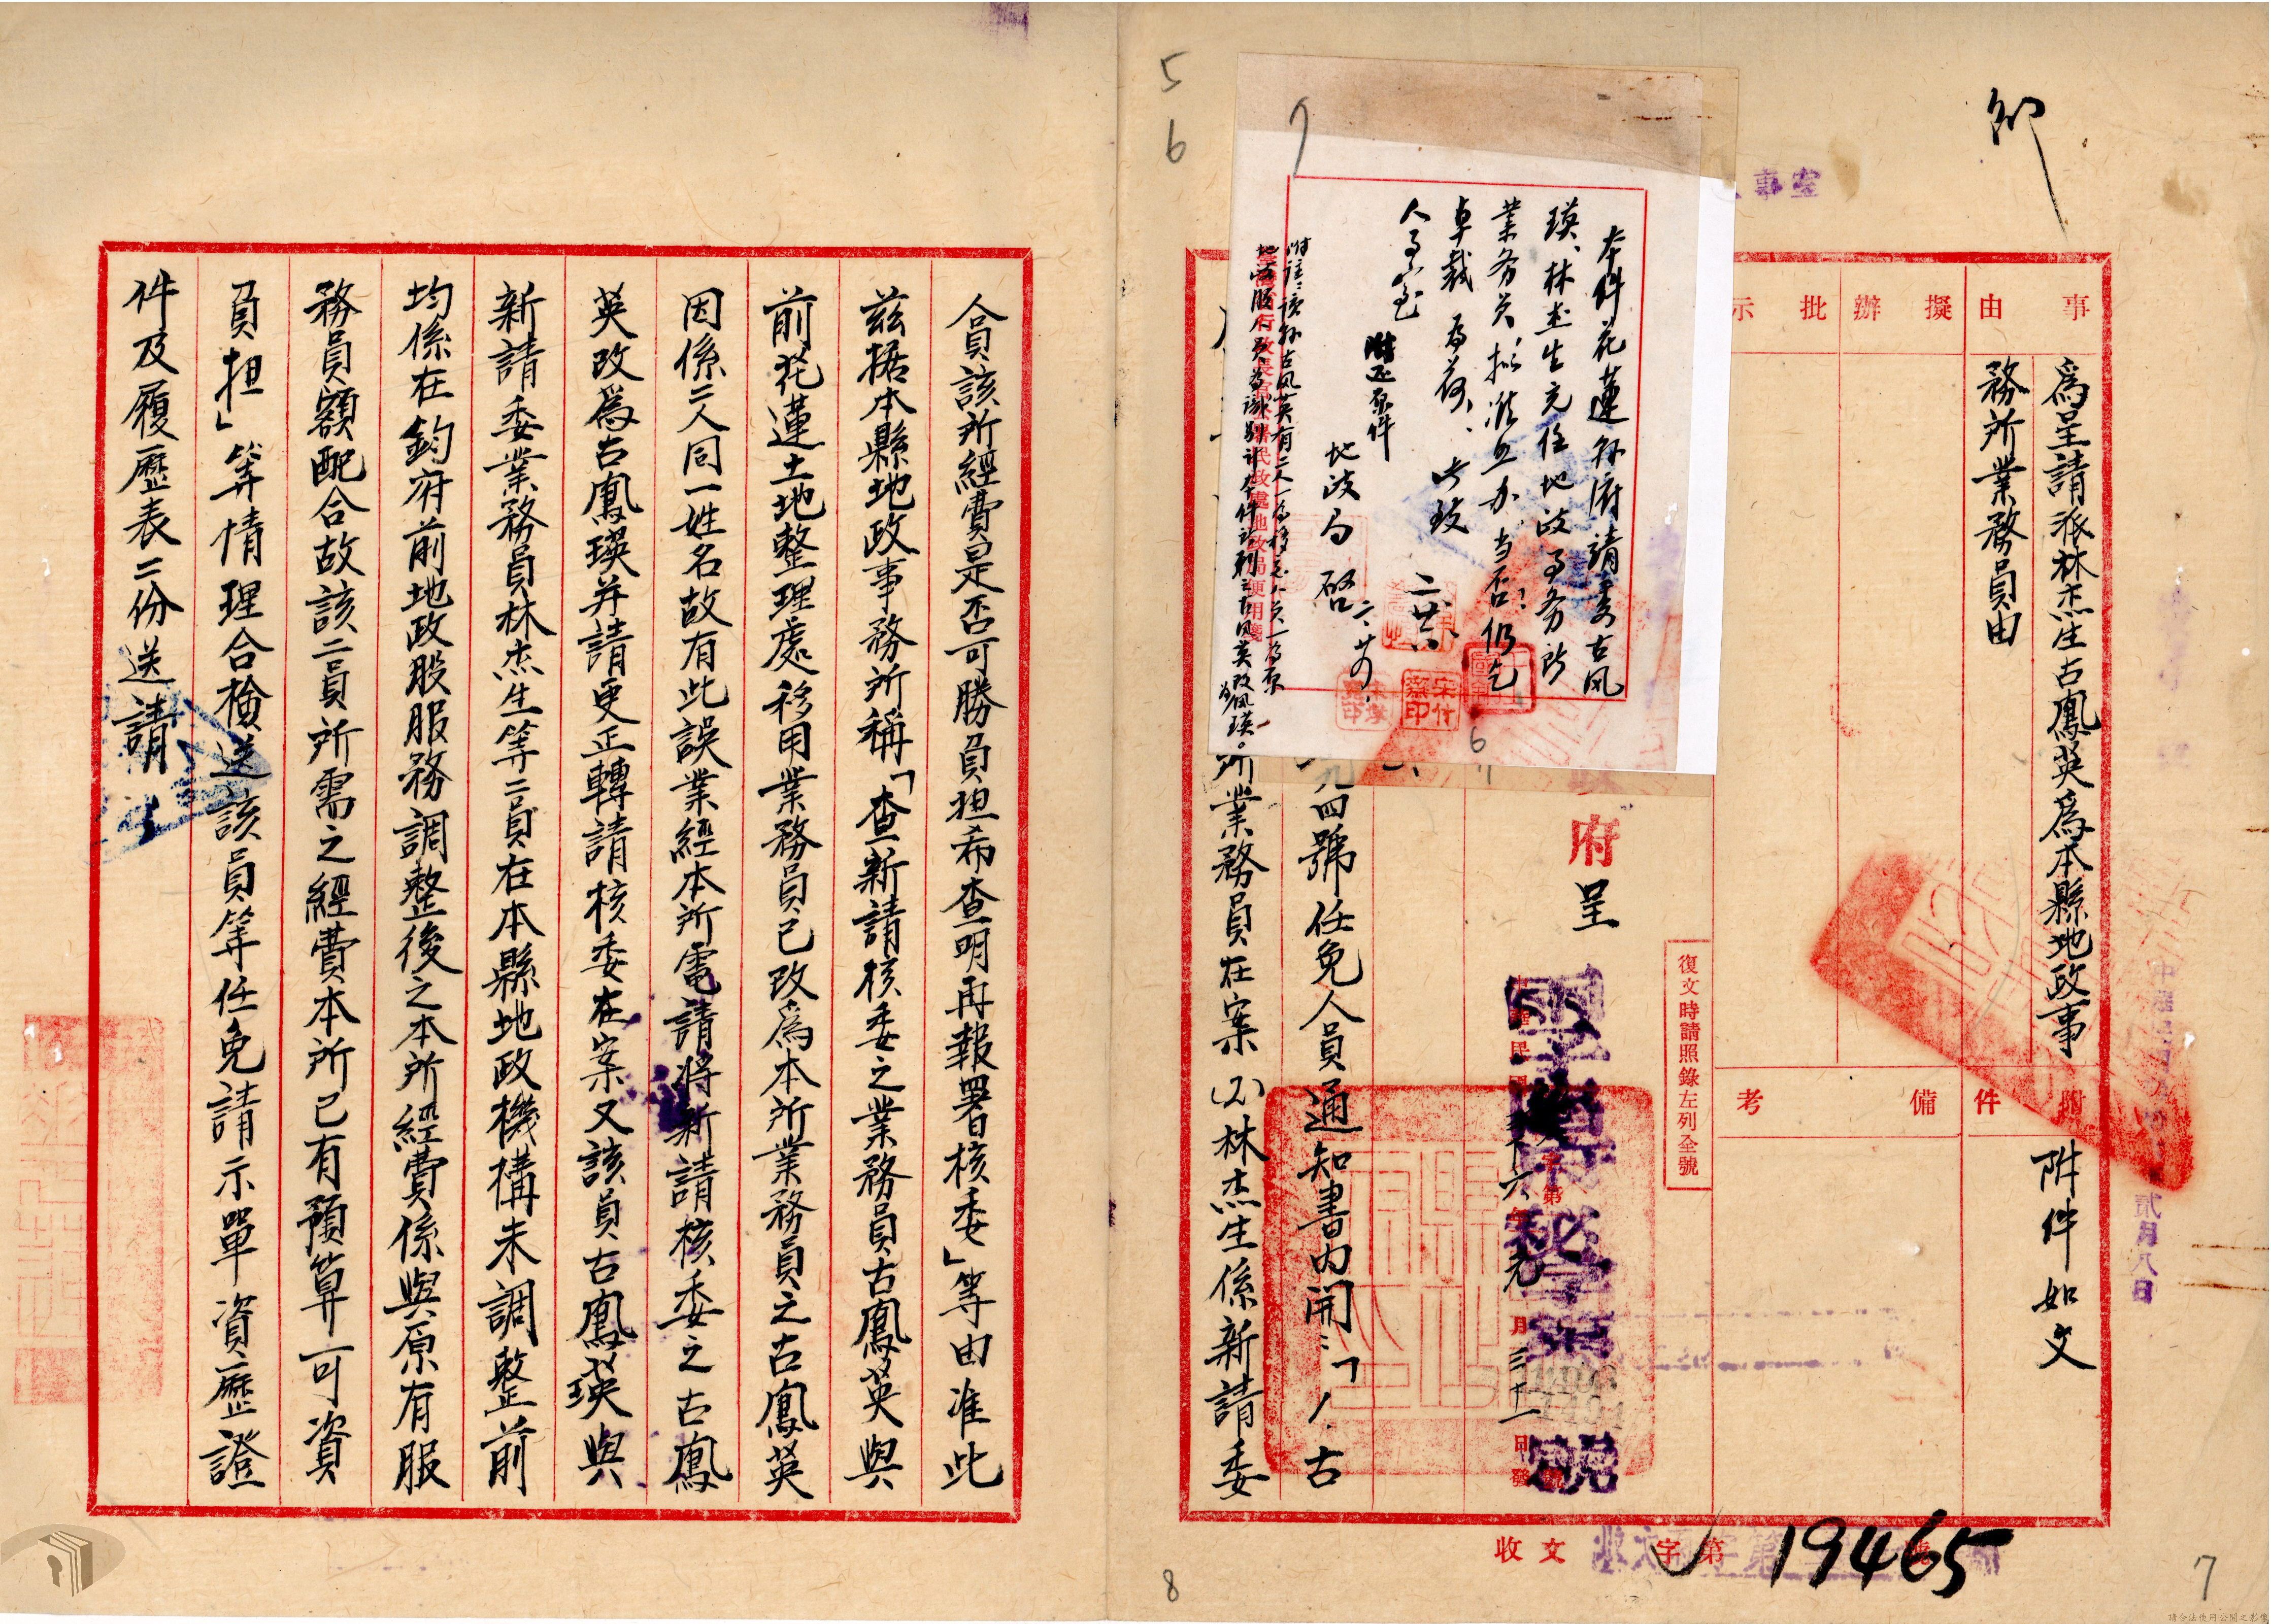 卯
人事室
事由
擬辦
批示
為呈請派林杰生古鳳英為本縣地政事
務所業務員由
附件
附件如文
備考
復文時請照錄左列全號
府呈
中華民國三十六年元月三十一日發
九四號任免人員通知書內開：「1.古
所業務員在案(2)林杰生係新請委
本件花蓮縣府請委古風
瑛、林杰生充任地政事務所
業務員，擬准照办，當否？仍乞
卓裁為荷、此致
人事室
附還原件
地政局 啓
二、廿四、
收文 字第 19465 號
貳月八日
5
6
7
7
8
人員該所經費是否可勝員担希查明再報署核委」等由准此
茲据本縣地政事務所稱「查新請核委之業務員古鳳英與
前花蓮土地整理處移用業務員已改為本所業務員之古鳳英
因係二人同一姓名故有此誤業經本所電請將新請核委之古鳳
英改為古鳳瑛并請更正轉請核委在案又該員古鳳瑛與
新請委業務員林杰生等二員在本縣地政機構未調整前
均係在鈞府前地政股服務調整後之本所經費係與原有服
務員額配合故該二員所需之經費本所已有預算可資
員担」等情理合檢送該員等任免請示單資歷證
件及履歷表二份送請
請合法使用公開之影像